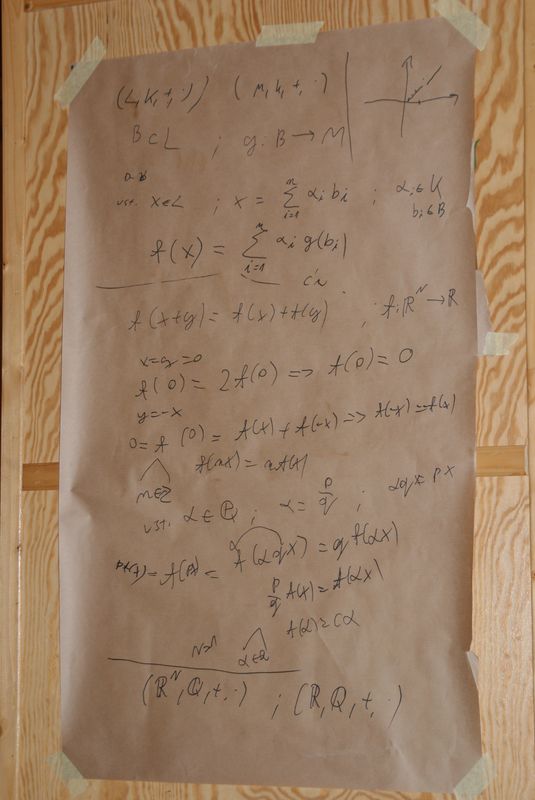 (L, K, +, ·) (M, K, +, ·)
B ⊂ L ; g: B → M
x ∈ L ; x = ∑_{i=1}^{n} α_i b_i ; α_i ∈ K
b_i ∈ B
f(x) = ∑_{i=1}^{n} α_i g(b_i)
f(x+y) = f(x) + f(y) ; f: ℝ^N → ℝ
x=y=0
f(0) = 2f(0) => f(0) = 0
y=-x
0 = f(0) = f(x) + f(-x) => f(-x) = -f(x)
f(nx) = nf(x)
α ∈ ℚ ; α = p/q ; αqx = px
pf(x) = f(px) = f(αqx) = q f(αx)
p/q f(x) = f(αx)
f(α) = cα
N=1 α ∈ ℚ
(ℝ^N, ℚ, +, ·) ; (ℝ, ℚ, +, ·)